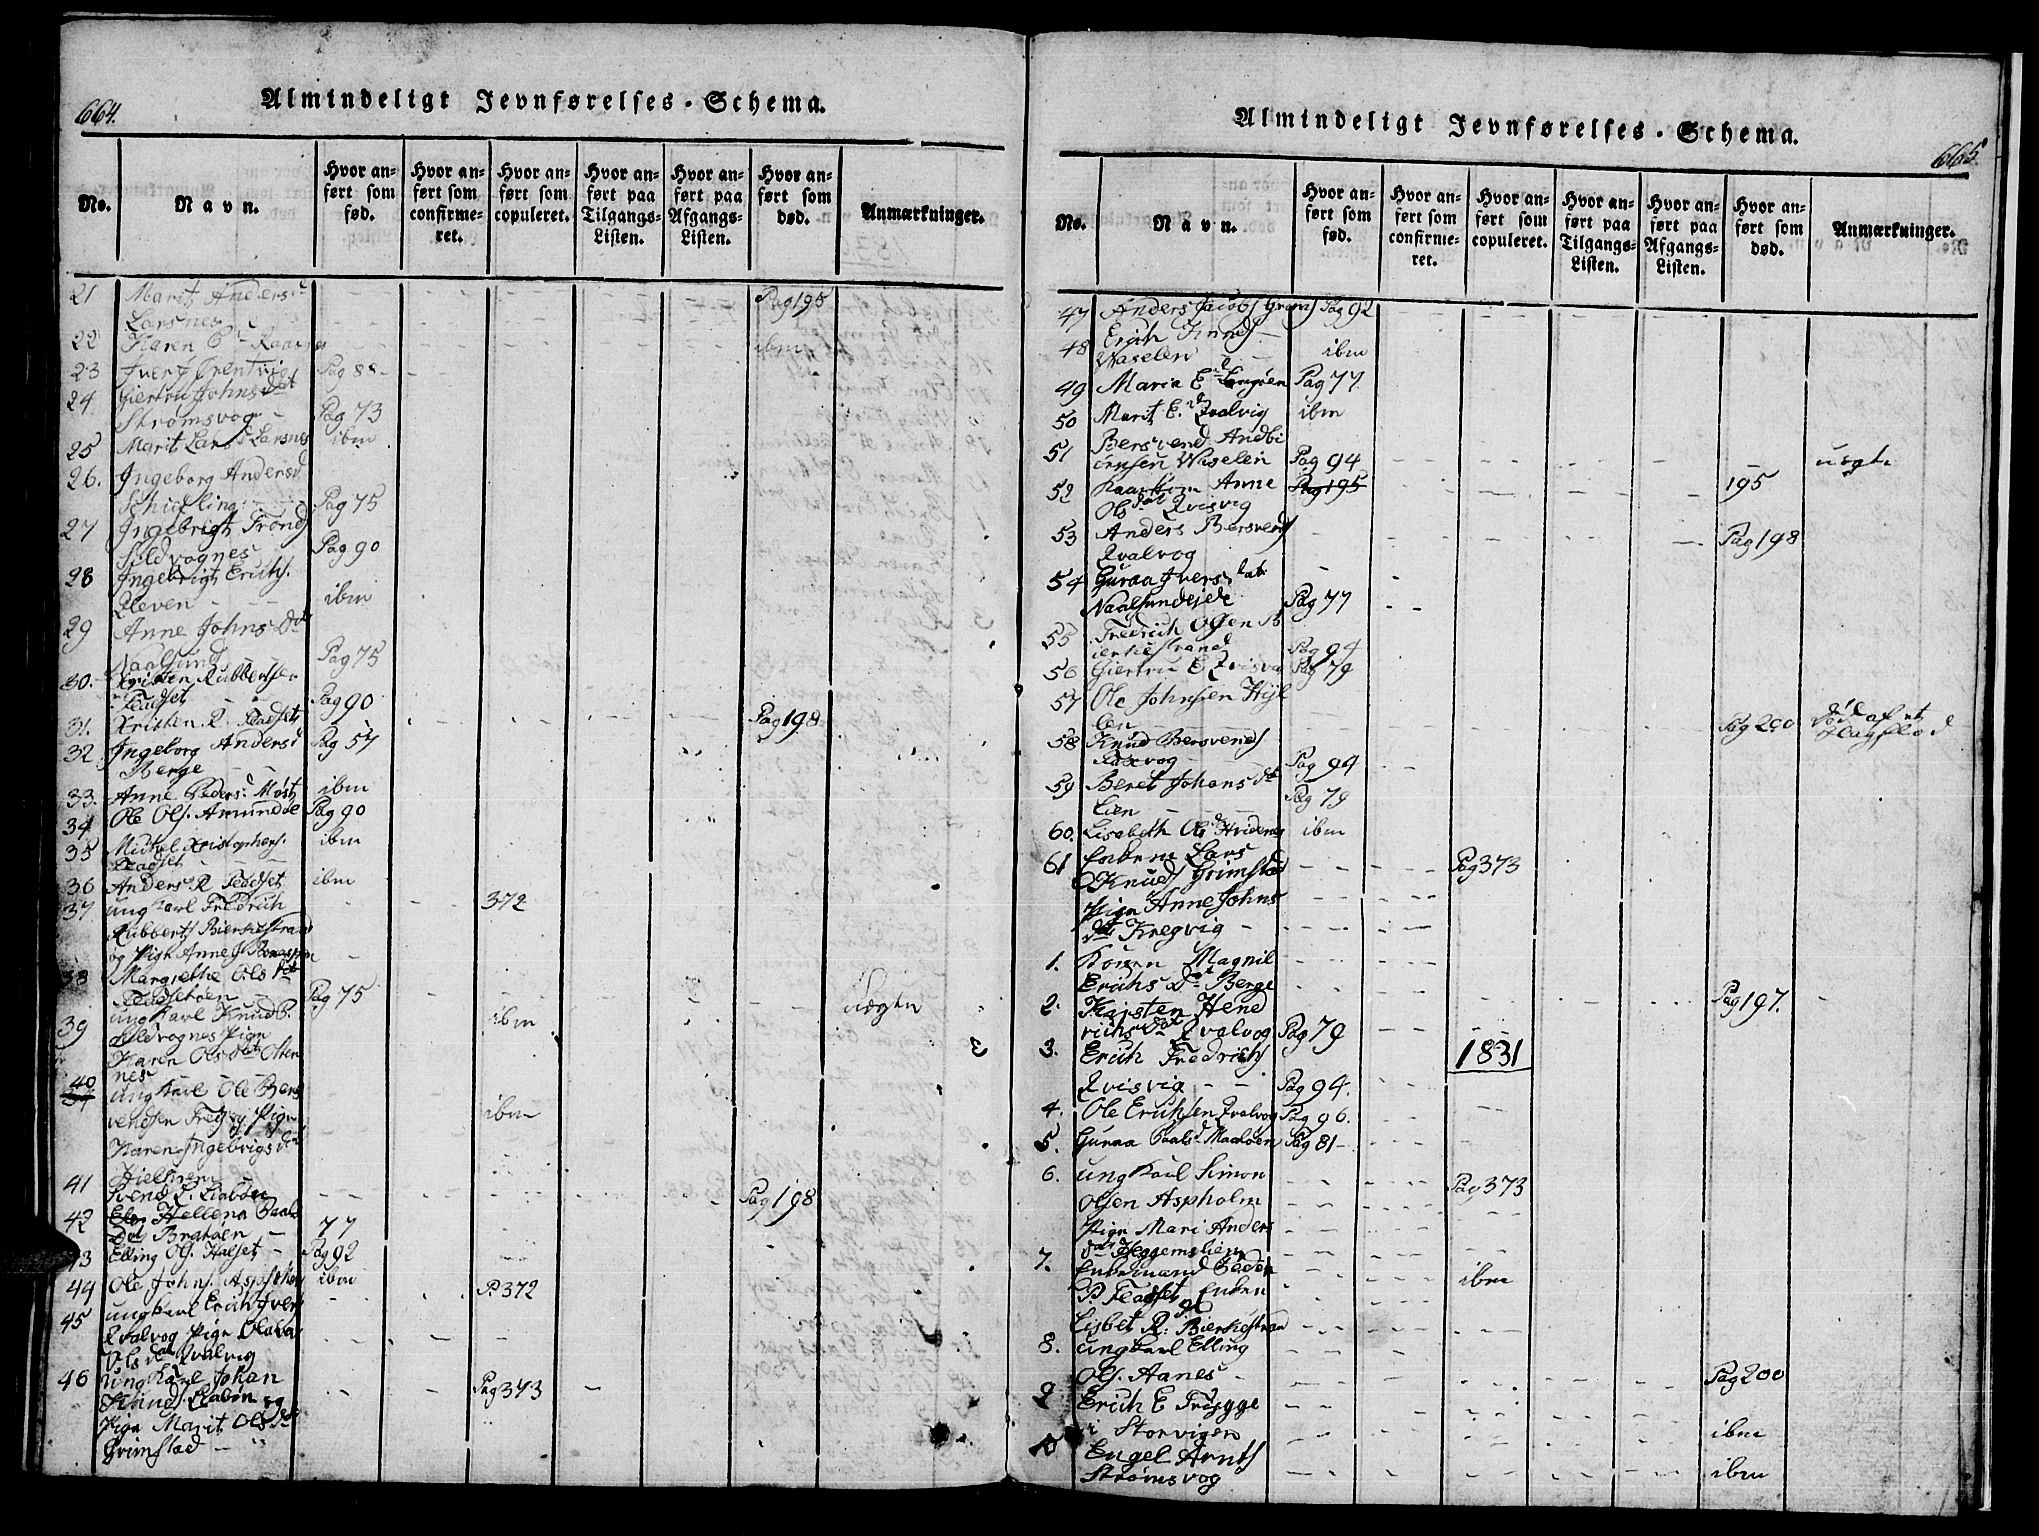 664.
Almindeligt Jevnførelses-Schema.
No. Navn. Hvor anført som fød. Hvor anført som confirmeret. Hvor anført som copuleret. Hvor anført paa Tilgangs-Listen. Hvor anført paa Afgangs-Listen. Hvor anført som død. Anmærkninger.
21 Marit Andersd Pag 195
Larsnes
22 Karen E - ibm
23 Iver J Pag 88
24 Giertru Johnsdat
Strømsvog - Pag 73
25 Marit Larsd Larsnes ibm
26. Ingeborg Andersd
Pag 75
27 Ingebrigt Trond
Sildvognes Pag 90
28 Ingebrigt Erichs.
ibm
29 Anne Johns Dat
Naalsund Pag 75
30. Kristen Rubbertsen
Fladset Pag 90
31. Kristen R. Fladset Pag 198
32 Ingeborg Andersd Pag 57
Berge
33. Anne Peders. Møst ibm
34 Ole Ols. Amundøe Pag 90
35 Michel Kristophers. ibm
Fladset
36 Anders R Fladset ibm
37 ung Karl Fredrich 372
Rubberts Bierkestrand
og Pige Anne
38 Margrethe Ols dat
Fladsetøen Pag 75 uægte
39 ung Karl Knud B. ibm
Sildvognes Pige
Karen Olsdat Osten
nes
40 ung Karl Ole Bers
vendsen Treg og Pige ibm
Karen Ingebrigsdat
41 Svend P. Liabøen Pag 198
42 Hellena Paals
Dat Bratøen 77
43 Elling Ols. Halset Pag 92
44 Ole Johns. ibm
45 ung Karl Erich Ivers P 372
Qvalvog Pige
Olsdat Qvalvig
46 ung Karl Johan
Knuds. og Pag 373
Pige Marit Olsdat
Grimstad
665
Almindeligt Jevnførelses-Schema.
No. Navn. Hvor anført som fød. Hvor anført som confirmeret. Hvor anført som copuleret. Hvor anført paa Tilgangs-Listen. Hvor anført paa Afgangs-Listen. Hvor anført som død. Anmærkninger.
47 Anders Jacobs Pag 92
48 Erich Knuds
Waselen ibm
49 Maria Ed Langøen Pag 77.
50 Marit E. Qvalvig ibm
51 Bersvend Andbi
ørnsen Waselen Pag 94 uægte
52 Anne Pag 195 195
Olsdat Qvisvig
53 Anders Bersvends
Qvalvog Pag 198
54 Guraa Ivers dat
Naalsundeide Pag 77
55 Fredrich Olsen B
ierkestrand Pag 94
56 Giertru E Pag 79
57 Ole Johnsen Hyl
len Pag 200
58 Knud Bersvends
Pag 94
59 Beret Johansdat
Lien Pag 79
60. Lisabeth Olsd ibm
61 Enkem Lars
Knuds Grimstad Pag 373
Pige Anne Johns
dat Kregvig
1. Karen Magnil
Erichs Dat Berge Pag 197.
2. Karsten Hend
richsdat Qvalvog Pag 79
3. Erich Fredrichs 1831
Qvisvig Pag 94.
4. Ole Erichsen Qvalvog Pag 96.
5. Guraa Paalsd Maaløen Pag 81
6. ung Karl Simon Pag 373
Olsen Aspholm
Pige Mari Anders
dat Heggemslien
7. Enkemand Peder ibm
P. Fladset Enken
Lisbet R: Bierkestran
8. ung Karl Elling
Ols. Aanes Pag 200
9 Erich E Trygge
i Storvigen ibm
10 Engel Arnts
Strømsvog ibm